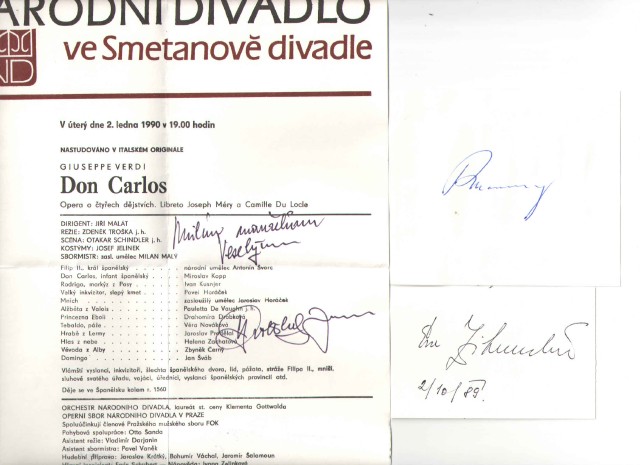 ÁRODNÍ DIVADLO
ve Smetanově divadle
ND
V úterý dne 2. ledna 1990 v 19.00 hodin
NASTUDOVÁNO V ITALSKÉM ORIGINÁLE
GIUSEPPE VERDI
Don Carlos
Opera o čtyřech dějstvích. Libreto Joseph Méry a Camille Du Locle
DIRIGENT: JIŘÍ MALÁT
REŽIE: ZDENĚK TROŠKA j. h.
SCÉNA: OTAKAR SCHINDLER j. h.
KOSTÝMY: JOSEF JELÍNEK
SBORMISTR: zasl. umělec MILAN MALÝ
Milým manželům
Veselým
Filip II., král španělský národní umělec Antonín Švorc
Don Carlos, infant španělský Miroslav Kopp
Rodrigo, markýz z Posy Ivan Kusnjer
Velký inkvizitor, slepý kmet Pavel Horáček
Mnich zasloužilý umělec Jaroslav Horáček
Alžběta z Valois Pauletta De Vaughn j. h.
Princezna Eboli Drahomíra Drobková
Tebaldo, páže Věra Nováková
Hrabě z Lermy Jaroslav
Hlas z nebe Helena Zachatová
Vévoda z Alby Zbyněk Černý
Domingo Jan Šváb
Vlámští vyslanci, inkvizitoři, šlechta španělského dvora, lid, pážata, stráže Filipa II., mniši,
sluhové svatého úřadu, vojáci, úředníci, vyslanci španělských provincií atd.
Děje se ve Španělsku kolem r. 1560
ORCHESTR NÁRODNÍHO DIVADLA, laureát st. ceny Klementa Gottwalda
OPERNÍ SBOR NÁRODNÍHO DIVADLA V PRAZE
Spoluúčinkují členové Pražského mužského sboru FOK
Pohybová spolupráce: Otto Šanda
Asistent režie: Vladimír Darjanin
Asistent sbormistra: Pavel Vaněk
Hudební příprava: Jaroslav Krátký, Bohumír Váchal, Jaromír Šalamoun
2/10/89.